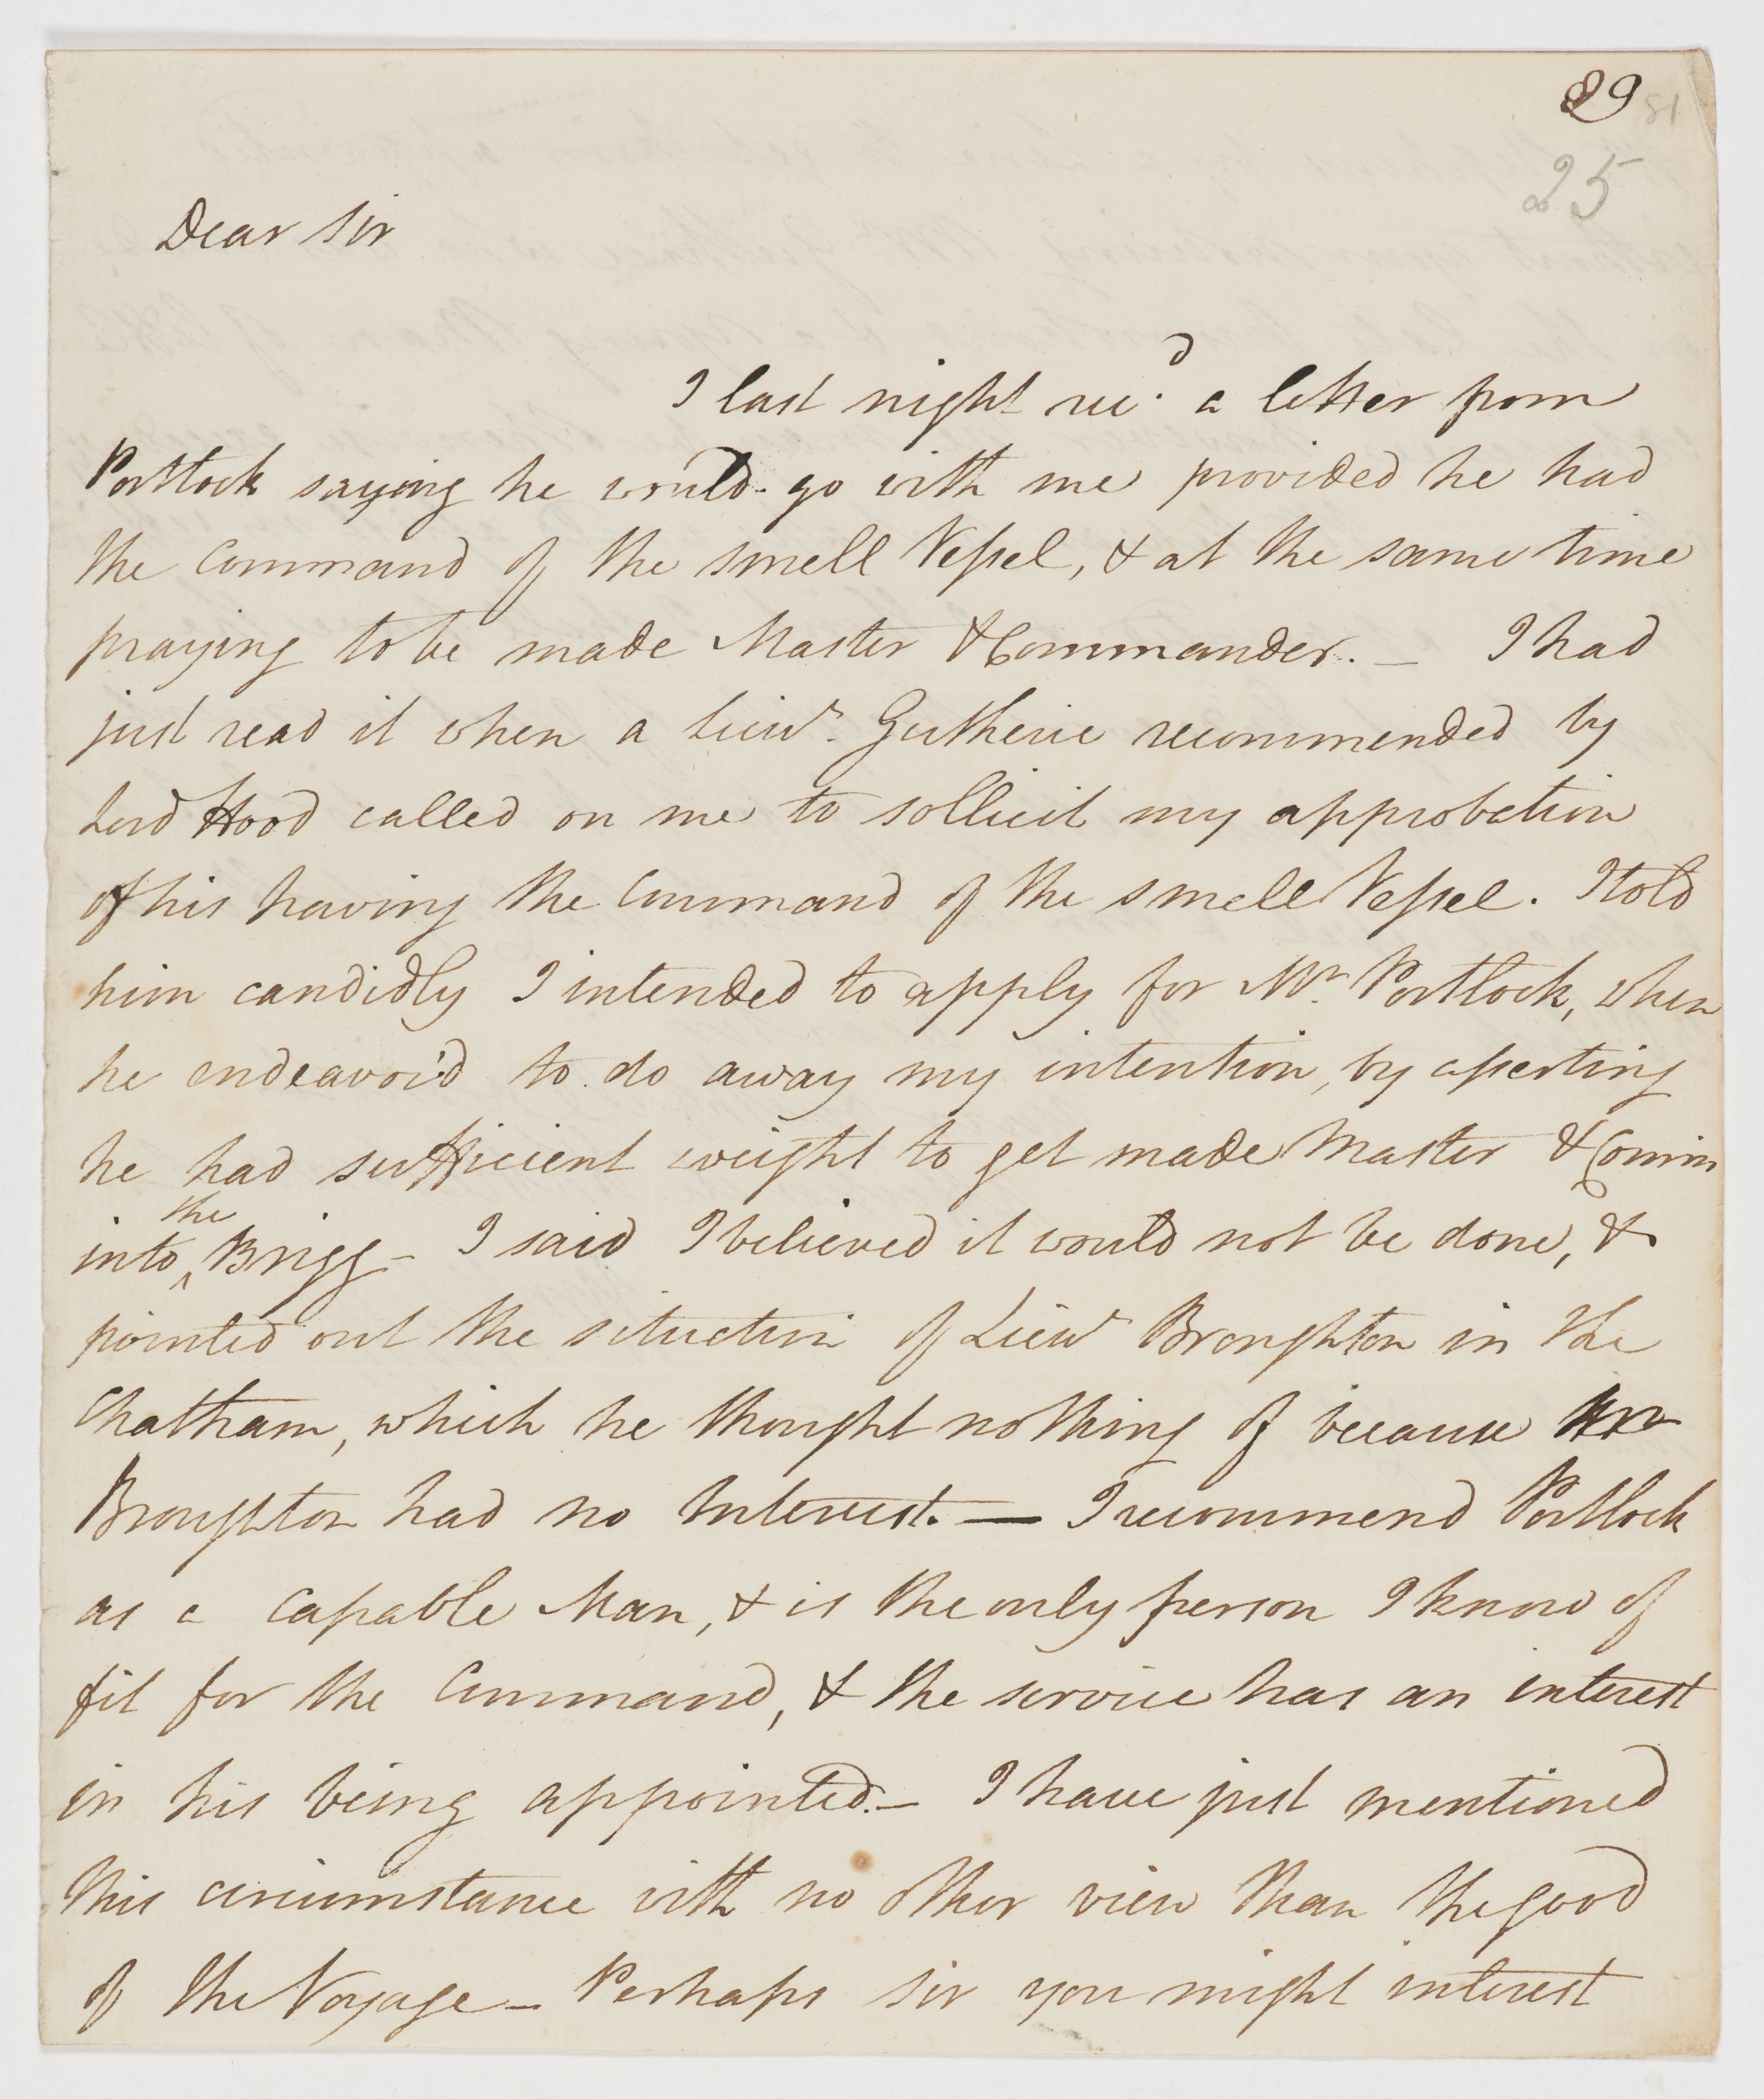 89
25
Dear Sir
I last night rec.d a letter from
Portlock saying he would go with me provided he had
the Command of the small Vessel, & at the same time
praying to be made Master & Commander. — I had
just read it when a Lieut. Gutherie recommended by
Lord Hood called on me to sollicit my approbation
of his having the Command of the small Vessel. I told
him candidly I intended to apply for Mr. Portlock, when
he endeavor'd to do away my intention, by asserting
he had sufficient weight to get made Master & Comm
the
into ^ Brigg - I said I believed it would not be done, &
pointed out the situation of Lieut Broughton in the
Chatham, which he thought nothing of because
Broughton had no Interest. — I recommend Portlock
as a capable Man, & is the only person I know of
fit for the Command, & the service has an interest
in his being appointed. — I have just mentioned
this circumstance with no other view than the good
of the Voyage — Perhaps Sir you might interest